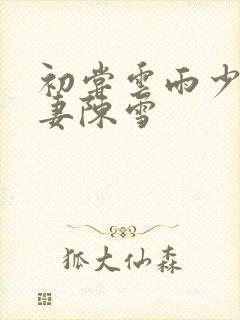 初尝雲雨少
妻陳雪
狐大仙森